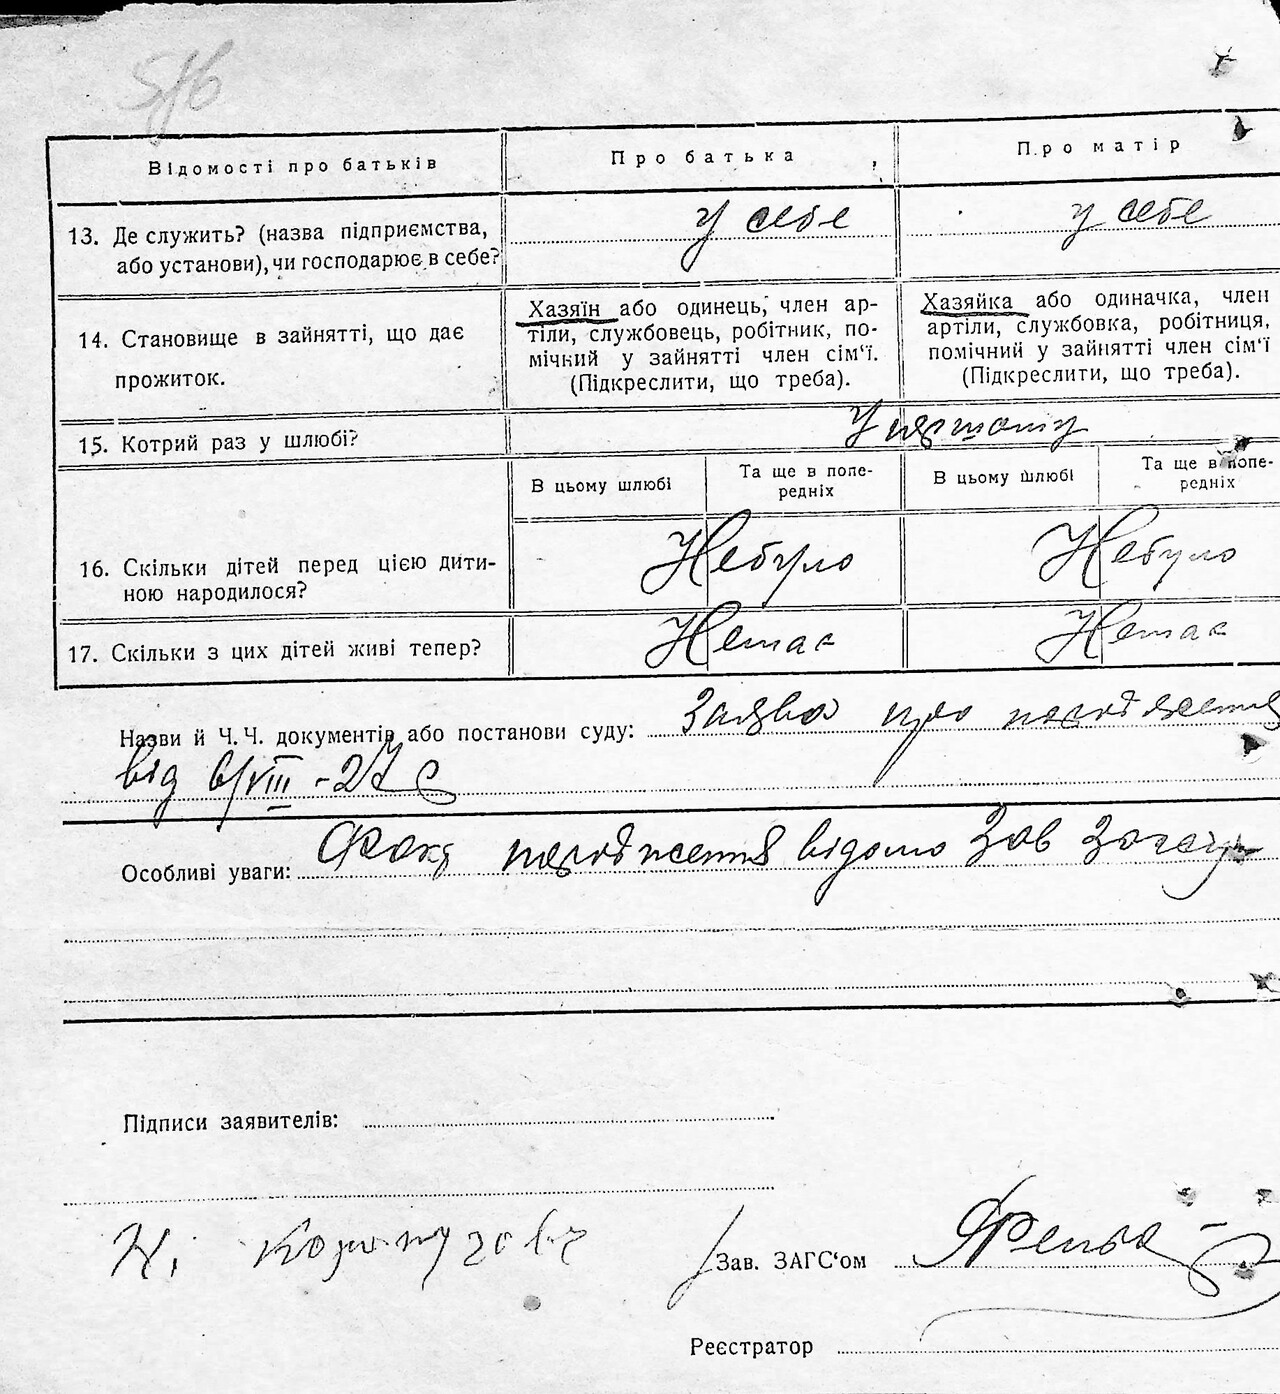 516
Відомості про батьків
Про батька
Про матір
13. Де служить? (назва підприємства,
або установи), чи господарює в себе?
у себе
у себе
14. Становище в зайнятті, що дає
прожиток.
Хазяїн або одинець, член ар-
тіли, службовець, робітник, по-
мічний у зайнятті член сім'ї.
(Підкреслити, що треба).
Хазяйка або одиначка, член
артіли, службовка, робітниця,
помічний у зайнятті член сім'ї
(Підкреслити, що треба).
15. Котрий раз у шлюбі?
У першому
В цьому шлюбі
Та ще в попе-
редніх
В цьому шлюбі
Та ще в попе-
редніх
16. Скільки дітей перед цією дити-
ною народилося?
Небуло
Небуло
17. Скільки з цих дітей живі тепер?
Немає
Немає
Назви й Ч. Ч. документів або постанови суду: Заява про народження
від 6/VIII-27
Особливі уваги: Факт народження відомо Зав Загсу
Підписи заявителів:
Зав. ЗАГС'ом
Реєстратор